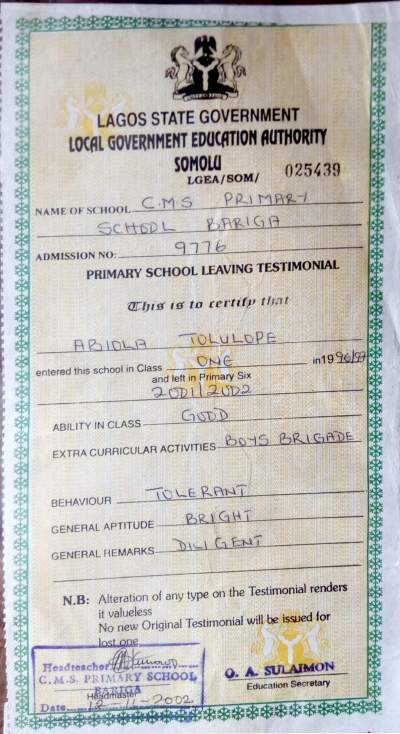 LAGOS STATE GOVERNMENT
LOCAL GOVERNMENT EDUCATION AUTHORITY
SOMOLU
LGEA/SOM/ 025439
NAME OF SCHOOL C.M.S PRIMARY
SCHOOL BARIGA
ADMISSION NO: 9776
PRIMARY SCHOOL LEAVING TESTIMONIAL
This is to certify that
ABIOLA TOLULOPE
entered this school in Class ONE in 1996/97
and left in Primary Six
2001/2002
ABILITY IN CLASS GOOD
EXTRA CURRICULAR ACTIVITIES BOYS BRIGADE
BEHAVIOUR TOLERANT
GENERAL APTITUDE BRIGHT
GENERAL REMARKS DILIGENT
N.B: Alteration of any type on the Testimonial renders
it valueless
No new Original Testimonial will be issued for
lost one
Headteacher
C.M.S. PRIMARY SCHOOL
BARIGA
Headmaster
Date 12-11-2002
O. A. SULAIMON
Education Secretary